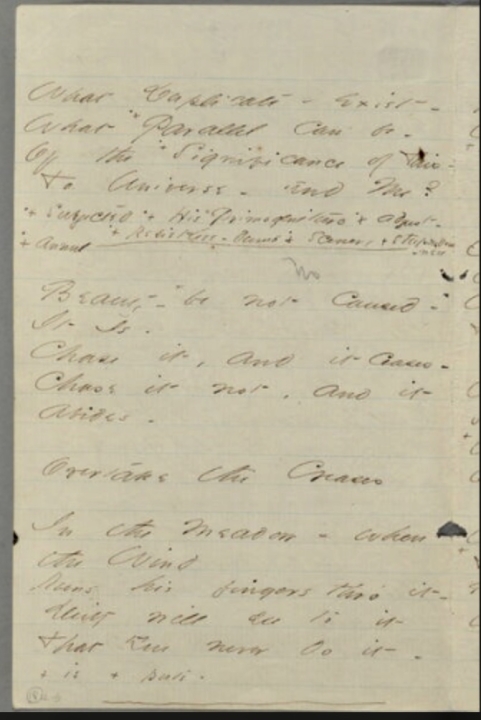 What Duplicate - exist -
What + Parallel can be -
Of the + Significance of this -
To Universe - and Me?
+ Suspected + His + adjust -
+ + Scenes +
+ Annul
No
Beauty - be not caused -
It Is -
Chase it, and it ceases -
Chase it not, and it
abides -
Overtake the Creases
In the Meadow - when
the Wind
Runs his fingers thro' it -
Deity will see to it
That You never do it -
+ is +